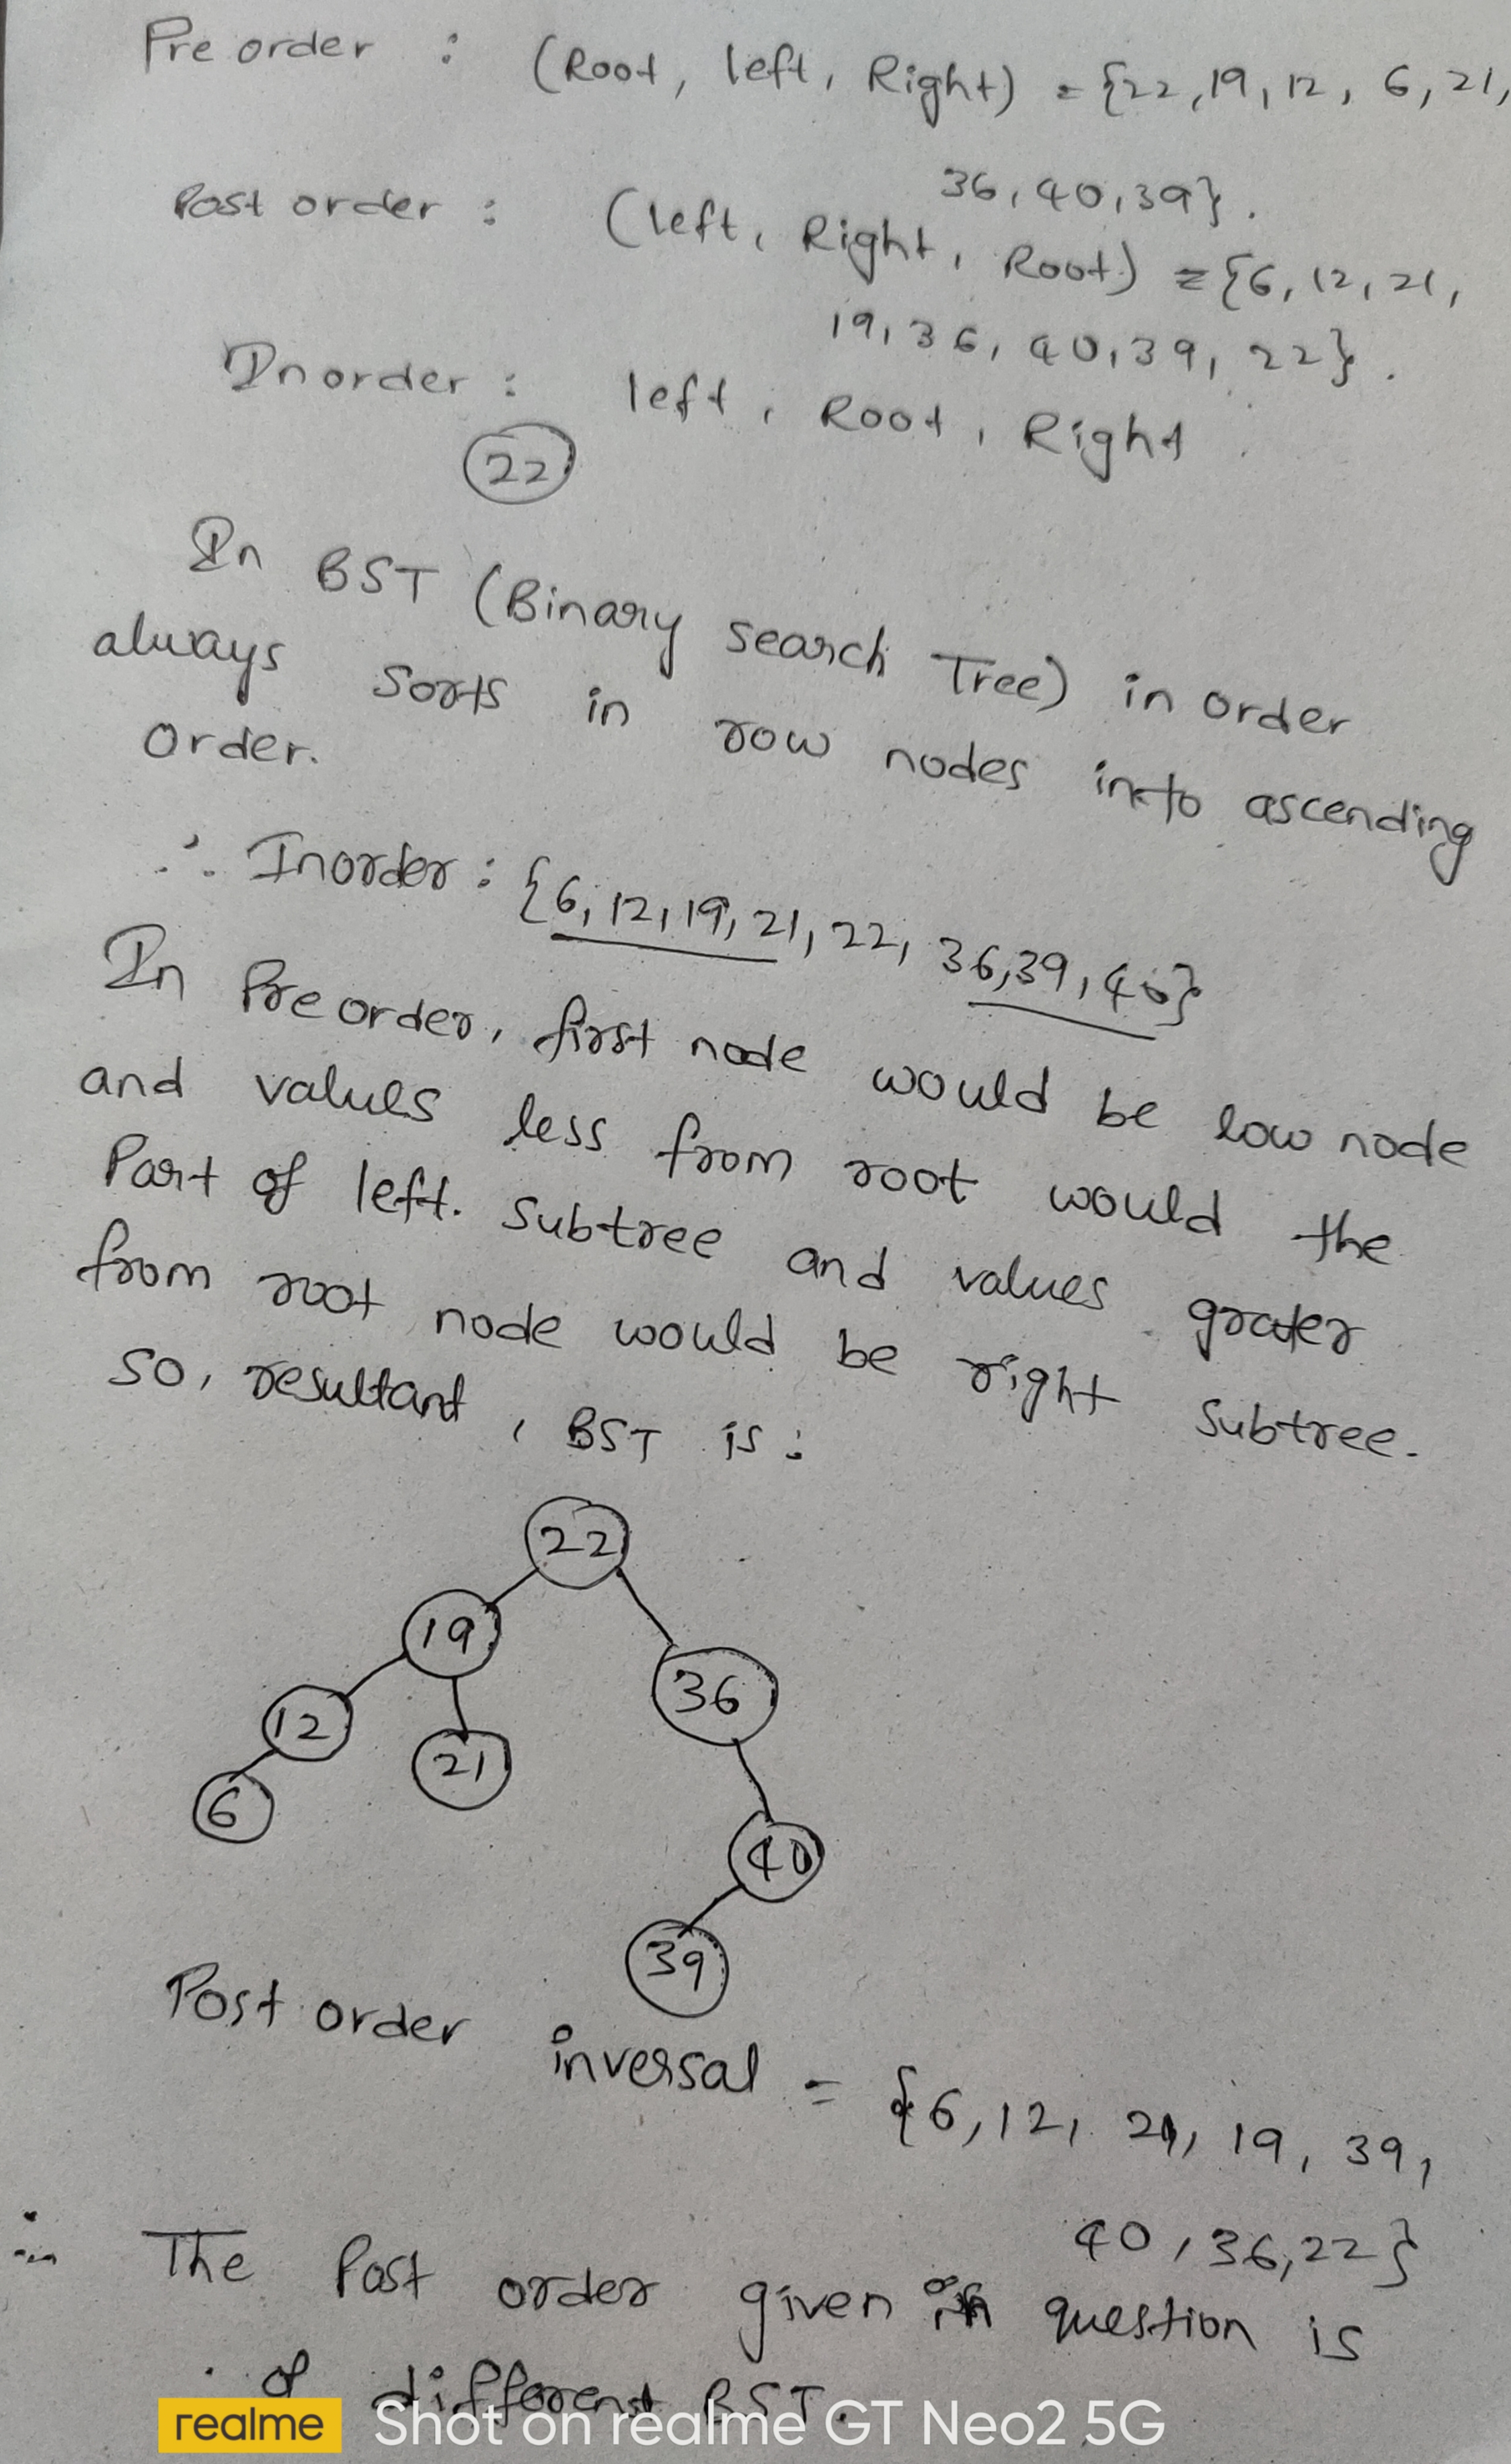 Pre order : (Root, left, Right) = {22, 19, 12, 6, 21,
36, 40, 39}.
Post order : (left, Right, Root) = {6, 12, 21,
19, 36, 40, 39, 22}.
Inorder : left, Root, Right
22
In BST (Binary search Tree) in order
always sorts in row nodes into ascending
order.
∴ Inorder : {6, 12, 19, 21, 22, 36, 39, 40}
In Preorder, first node would be low node
and values less from root would the
Part of left. subtree and values grater
from root node would be right subtree.
so, resultant, BST is :
22
19
36
12
21
6
40
39
Post order inversal = {6, 12, 21, 19, 39,
40, 36, 22}
∴ The Post order given in question is
of different BST.
realme Shot on realme GT Neo2 5G